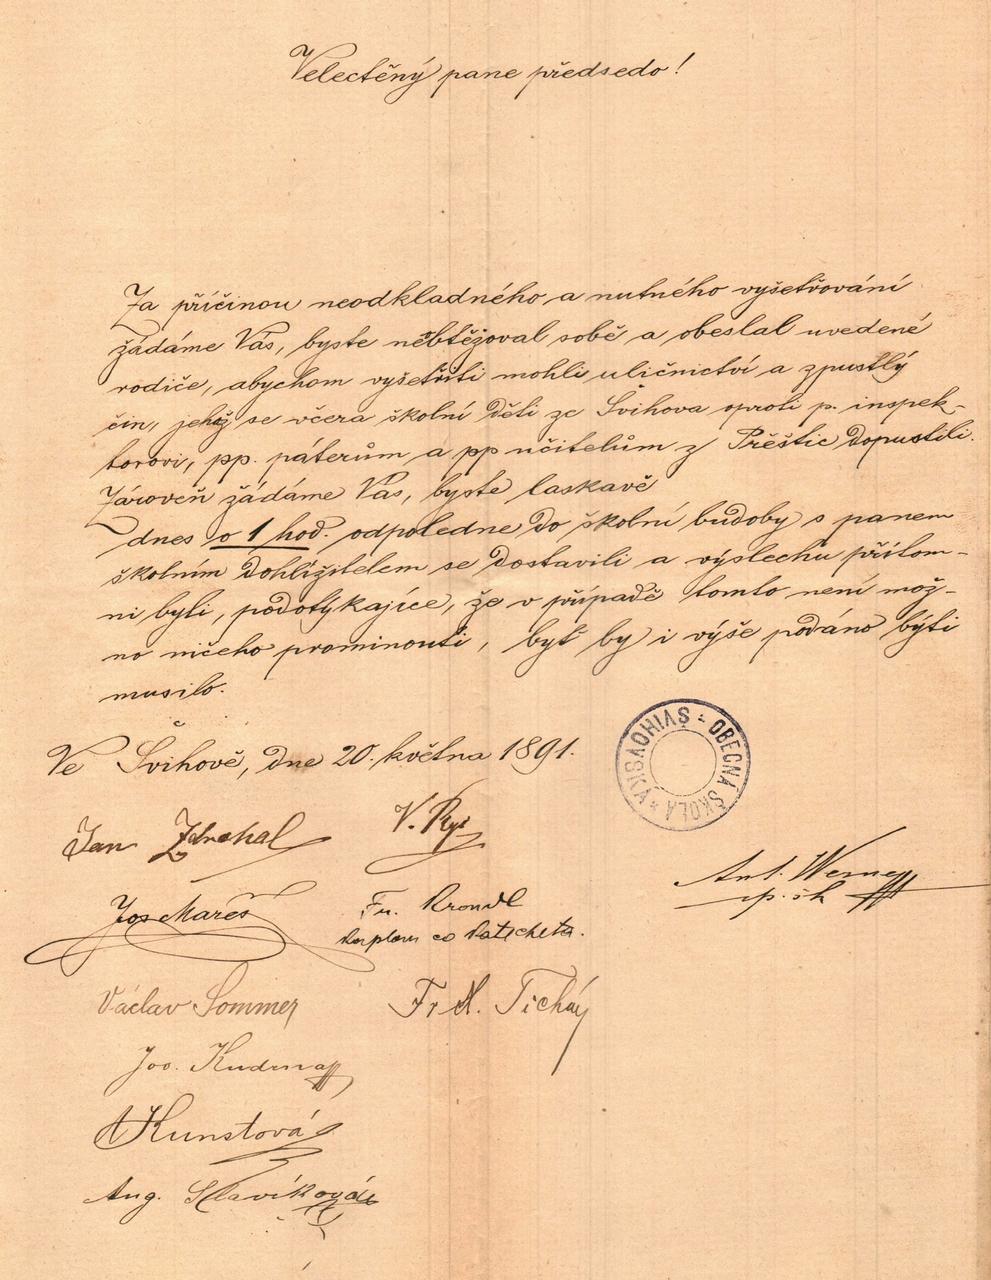 Velectěný pane předsedo!
Za příčinou neodkladného a nutného vyšetřování
žádáme Vás, byste nebtěžoval sobě a obeslal uvedené
rodiče, abychom vyšetřiti mohli uličnictví a zpustlý
čin, jehož se včera školní děti ze Švihova oproti p. inspek-
torovi, pp. páterům a pp učitelům z Přeštic dopustili.
Zároveň žádáme Vás, byste laskavě
dnes o 1 hod. odpoledne do školní budoby s panem
školním dohlížitelem se dostavili a výslechu přítom-
ni byli, podotýkajíce, že v případě tomto není mož-
no ničeho prominouti, byť by i výše podáno býti
musilo.
Ve Švihově, dne 20. května 1891.
OBECNÁ ŠKOLA ŠVIHOVSKÁ
Jan Zdrahal
V. Rys
Ant. Werner
Jos Mareš
Fr. Krondl
kaplan co katecheta.
Václav Sommer
Fr. Tichý
Jos. Kudrna
A Kunstová
Aug. Slavíková